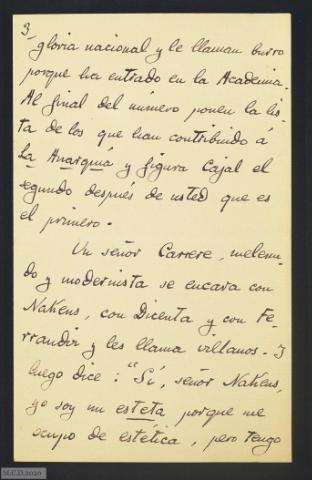 3,
gloria nacional y le llaman burro
porque ha entrado en la Academia.
Al final del número ponen la lis-
ta de los que han contribuido á
La Anarquía y figura Cajal el
segundo después de usted que es
el primero.
Un señor Carrere, melenu-
do y modernista se encara con
Nakens, con Dicenta y con Fe-
rrandiz y les llama villanos. Y
luego dice: "Sí, señor Nakens,
yo soy un esteta porque me
ocupo de estética, pero tengo
M.C.D.2020